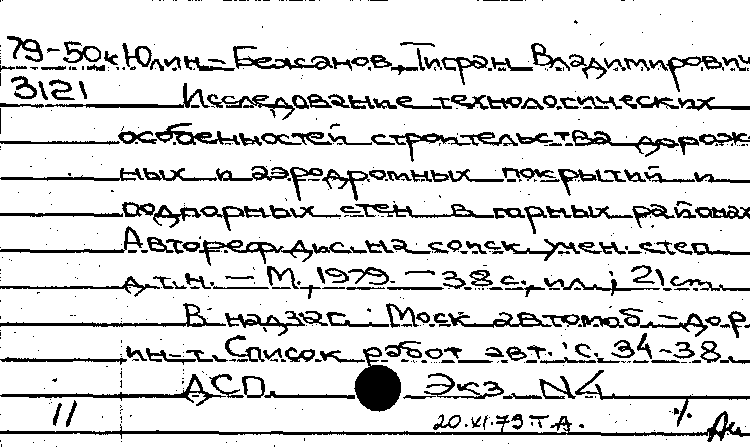 79-50к Юлин-Бежанов, Тигран Владимирович
3121 Исследование технологических
особенностей строительства дорож
ных и аэродромных покрытий и
подпорных стен в горных районах
Автореф. дис. на соиск. учен. степ
д.т.н. — М., 1979. — 38 с., ил.; 21 см.
В надзаг.: Моск автомоб.-дор.
ин-т. Список работ авт.: с. 34-38.
ДСП. Экз. N4
11 20.XI.79 Т.А.